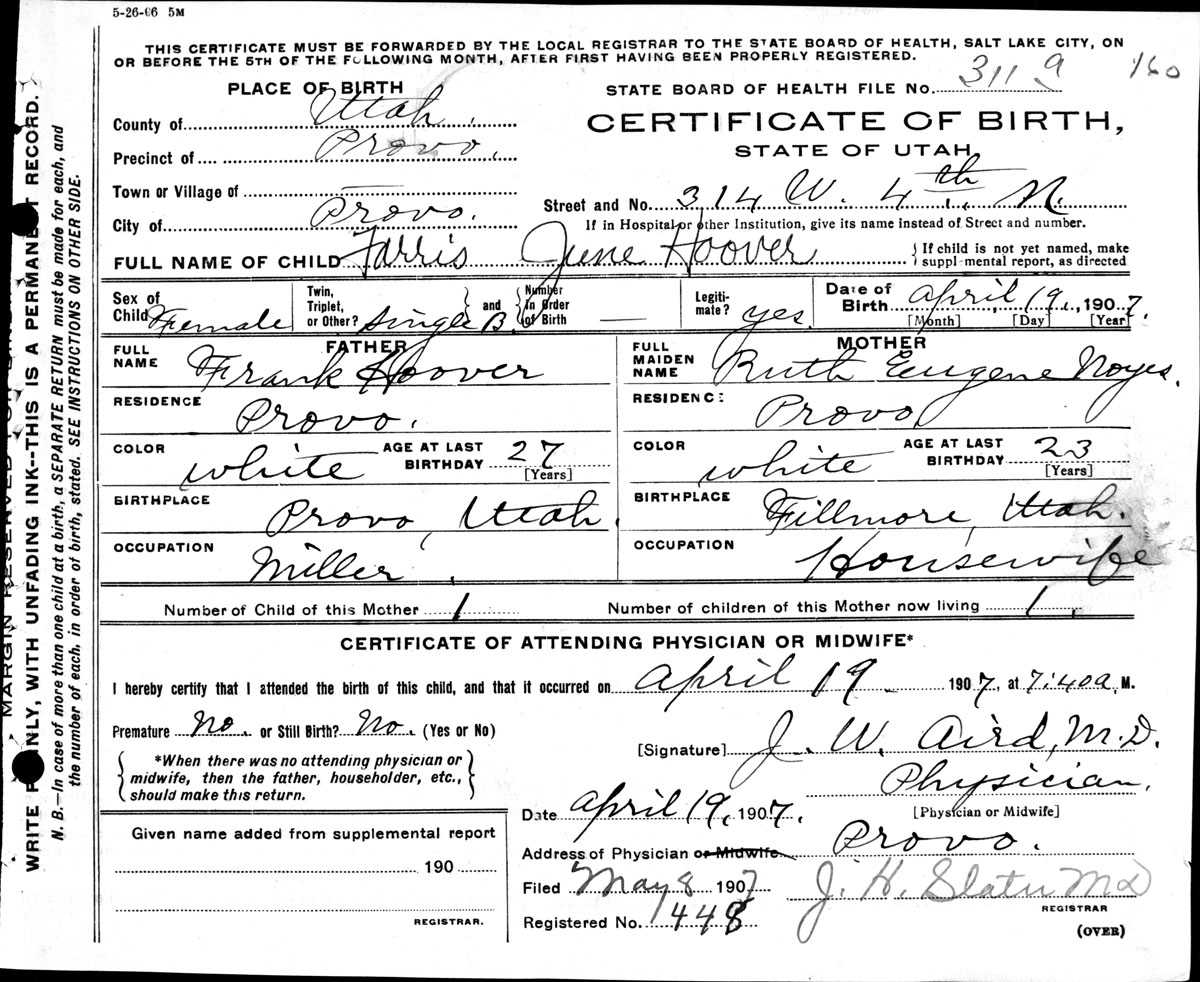 5-26-06 5M
THIS CERTIFICATE MUST BE FORWARDED BY THE LOCAL REGISTRAR TO THE STATE BOARD OF HEALTH, SALT LAKE CITY, ON
OR BEFORE THE 5TH OF THE FOLLOWING MONTH, AFTER FIRST HAVING BEEN PROPERLY REGISTERED.
160
PLACE OF BIRTH
STATE BOARD OF HEALTH FILE No. 3119
County of Utah.
CERTIFICATE OF BIRTH,
Precinct of Provo.
STATE OF UTAH
Town or Village of —
Street and No. 314 W. 4th N.
City of Provo.
If in Hospital or other Institution, give its name instead of Street and number.
FULL NAME OF CHILD Farris June Hoover
{If child is not yet named, make
supplemental report, as directed
Sex of Child Female
Twin, Triplet, or Other? Single B. and Number In Order of Birth —
Legitimate? yes.
Date of Birth April 19, 1907.
[Month] [Day] [Year]
FATHER
FULL NAME Frank Hoover
RESIDENCE Provo.
COLOR white
AGE AT LAST BIRTHDAY 27
[Years]
BIRTHPLACE Provo, Utah.
OCCUPATION Miller.
MOTHER
FULL MAIDEN NAME Ruth Eugene Noyes.
RESIDENCE Provo
COLOR white
AGE AT LAST BIRTHDAY 23
[Years]
BIRTHPLACE Fillmore, Utah.
OCCUPATION Housewife
Number of Child of this Mother 1
Number of children of this Mother now living 1.
CERTIFICATE OF ATTENDING PHYSICIAN OR MIDWIFE*
I hereby certify that I attended the birth of this child, and that it occurred on April 19 1907, at 7:40 a. M.
Premature No. or Still Birth? No. (Yes or No)
[Signature] J. W. Aird, M.D.
{*When there was no attending physician or
midwife, then the father, householder, etc.,
should make this return.}
Physician.
[Physician or Midwife]
Date April 19, 1907.
Given name added from supplemental report
190
REGISTRAR.
Address of Physician or Midwife Provo.
Filed May 8 1907
J. H. Slater MD
REGISTRAR
Registered No. 1448
(OVER)
MARGIN RESERVED
WRITE ONLY, WITH UNFADING INK--THIS IS A PERMANENT RECORD.
N. B.—In case of more than one child at a birth, a SEPARATE RETURN must be made for each, and
the number of each, in order of birth, stated. SEE INSTRUCTIONS ON OTHER SIDE.